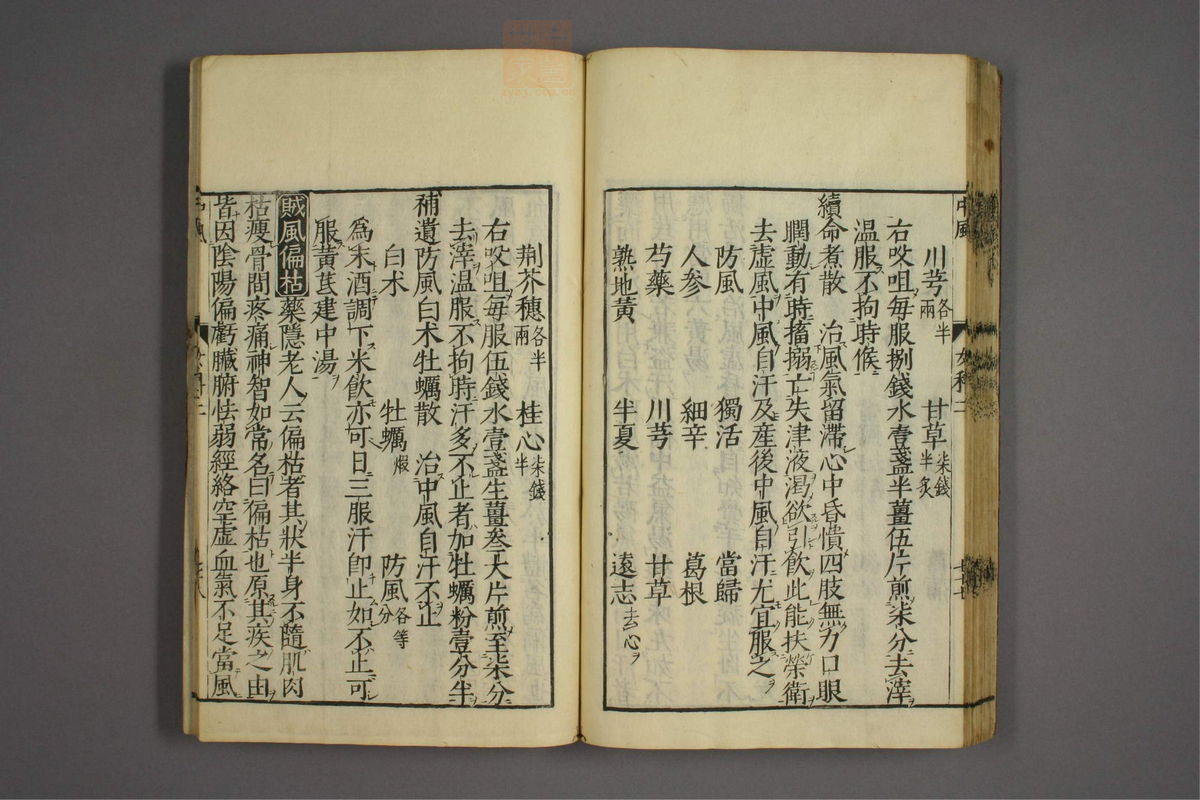 中風
川芎各半兩　甘草柒錢半炙
右㕮咀每服捌錢水壹盞半薑伍片煎柒分去滓
溫服不拘時候
續命煮散　治風氣留滯心中昏憒四肢無力口眼
瞤動有時搐搦亡失津液渴欲引飲此能扶榮衛
去虛風中風自汗及産後中風自汗尤宜服之
防風　獨活　當歸
人參　細辛　葛根
芍藥　川芎　甘草
熟地黃　半夏　遠志去心
荆芥穗各半兩　桂心柒錢半
右㕮咀每服伍錢水壹盞生薑叁大片煎至柒分
去滓溫服不拘時汗多不止者加牡蠣粉壹分半
補遺防風白术牡蠣散　治中風自汗不止
白术　牡蠣煆　防風各等分
爲末酒調下米飲亦可日三服汗卽止如不止可
服黃芪建中湯
賊風偏枯藥隱老人云偏枯者其狀半身不隨肌肉
枯瘦骨間疼痛神智如常名曰偏枯也原其疾之由
皆因陰陽偏虧臟腑怯弱經絡空虛血氣不足當風
中風